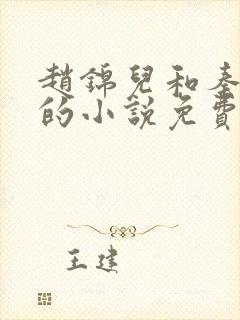 趙錦兒和秦
的小說免費
王建